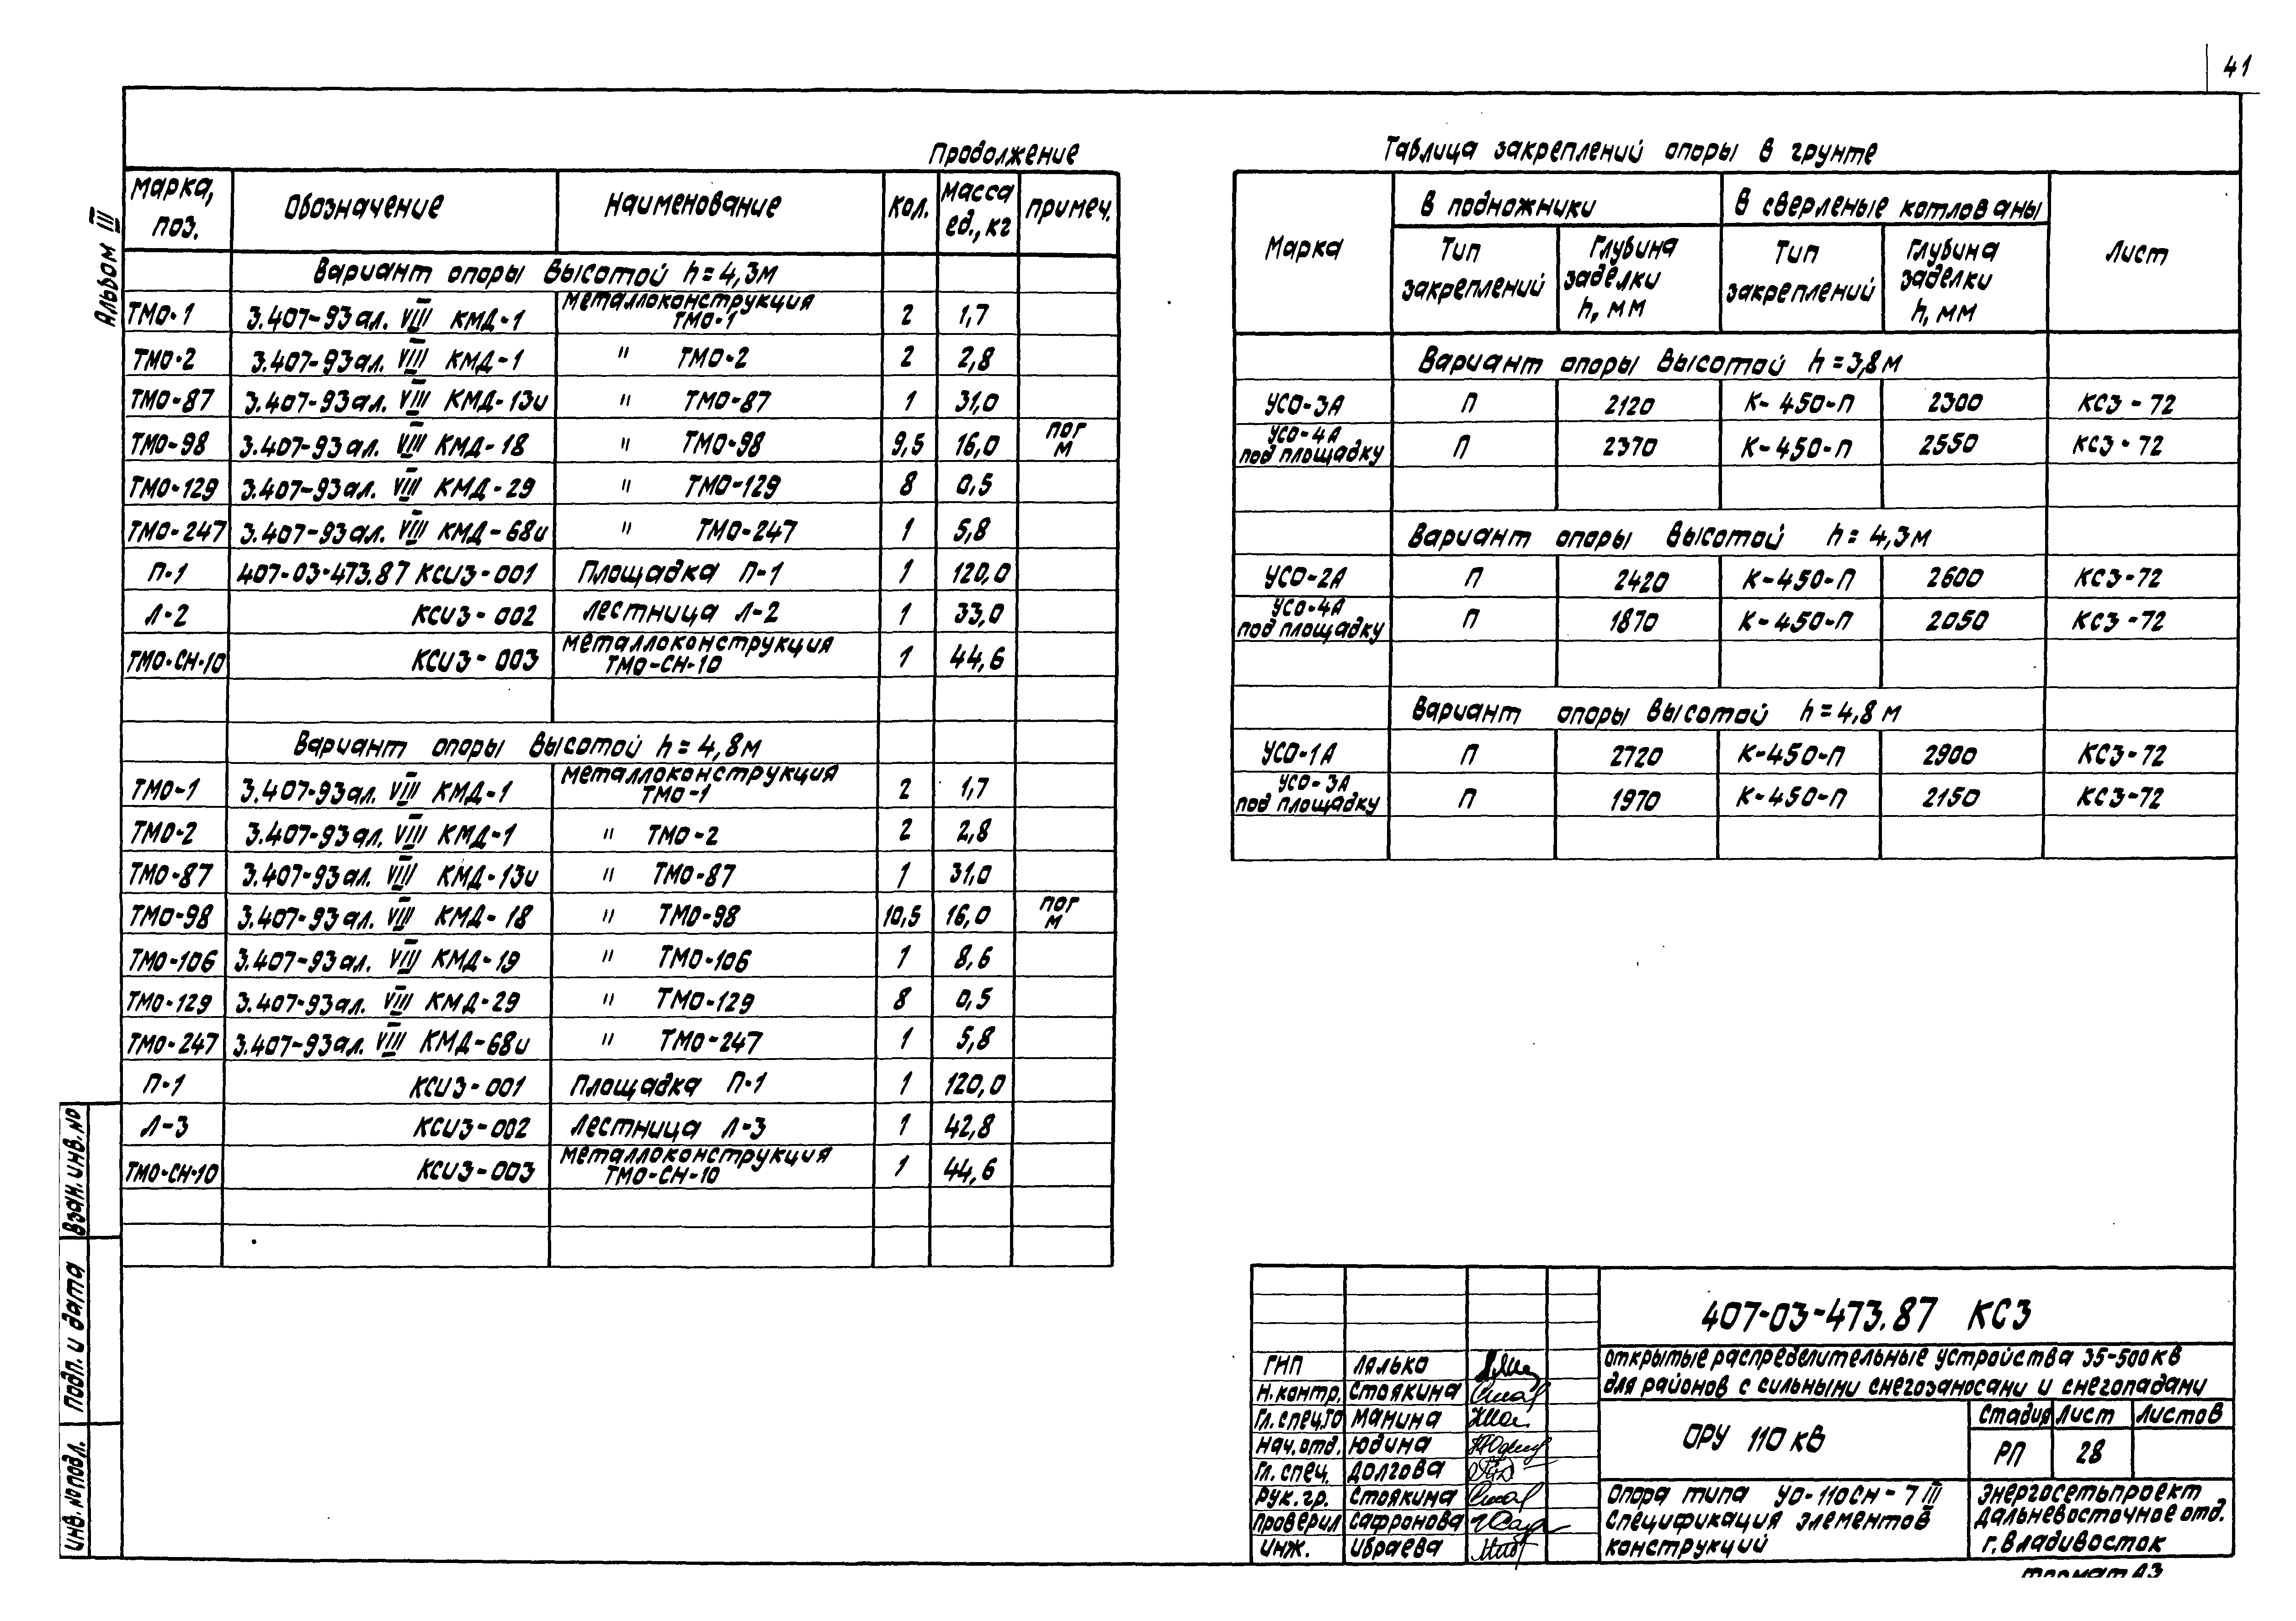 41
Альбом III
Продолжение
Марка, поз. Обозначение Наименование Кол. Масса ед., кг Примеч.
Вариант опоры высотой h = 4,3м
ТМО-1 3.407-93 ал. VIII КМД-1 Металлоконструкция ТМО-1 2 1,7
ТМО-2 3.407-93 ал. VIII КМД-1 " ТМО-2 2 2,8
ТМО-87 3.407-93 ал. VIII КМД-13и " ТМО-87 1 31,0
ТМО-98 3.407-93 ал. VIII КМД-18 " ТМО-98 9,5 16,0 пог м
ТМО-129 3.407-93 ал. VIII КМД-29 " ТМО-129 8 0,5
ТМО-247 3.407-93 ал. VIII КМД-68и " ТМО-247 1 5,8
П-1 407-03-473.87 КСИ3-001 Площадка П-1 1 120,0
Л-2 КСИ3-002 Лестница Л-2 1 33,0
ТМО-СН-10 КСИ3-003 Металлоконструкция ТМО-СН-10 1 44,6
Вариант опоры высотой h = 4,8м
ТМО-1 3.407-93 ал. VIII КМД-1 Металлоконструкция ТМО-1 2 1,7
ТМО-2 3.407-93 ал. VIII КМД-1 " ТМО-2 2 2,8
ТМО-87 3.407-93 ал. VIII КМД-13и " ТМО-87 1 31,0
ТМО-98 3.407-93 ал. VIII КМД-18 " ТМО-98 10,5 16,0 пог м
ТМО-106 3.407-93 ал. VIII КМД-19 " ТМО-106 1 8,6
ТМО-129 3.407-93 ал. VIII КМД-29 " ТМО-129 8 0,5
ТМО-247 3.407-93 ал. VIII КМД-68и " ТМО-247 1 5,8
П-1 КСИ3-001 Площадка П-1 1 120,0
Л-3 КСИ3-002 Лестница Л-3 1 42,8
ТМО-СН-10 КСИ3-003 Металлоконструкция ТМО-СН-10 1 44,6
Таблица закреплений опоры в грунте
Марка В подножники В сверленые котлованы Лист
Тип закреплений Глубина заделки h, мм Тип закреплений Глубина заделки h, мм
Вариант опоры высотой h = 3,8м
УСО-3А П 2120 К-450-П 2300 КС3-72
УСО-4А под площадку П 2370 К-450-П 2550 КС3-72
Вариант опоры высотой h = 4,3м
УСО-2А П 2420 К-450-П 2600 КС3-72
УСО-4А под площадку П 1870 К-450-П 2050 КС3-72
Вариант опоры высотой h = 4,8м
УСО-1А П 2720 К-450-П 2900 КС3-72
УСО-3А под площадку П 1970 К-450-П 2150 КС3-72
Взам. инв. №
Подп. и дата
Инв. № подл.
407-03-473.87 КС3
Открытые распределительные устройства 35-500кв
для районов с сильными снегозаносами и снегопадами
ГНП Лялько
Н.контр. Стоякина
Гл.спец.ТО Манина
Нач.отд. Юдина
Гл. спец. Долгова
Рук. гр. Стоякина
Проверил Сафронова
Инж. Ибраева
ОРУ 110 кв
Стадия Лист Листов
РП 28
Опора типа УО-110СН-7 III
Спецификация элементов
конструкций
Энергосетьпроект
Дальневосточное отд.
г. Владивосток
Формат А3